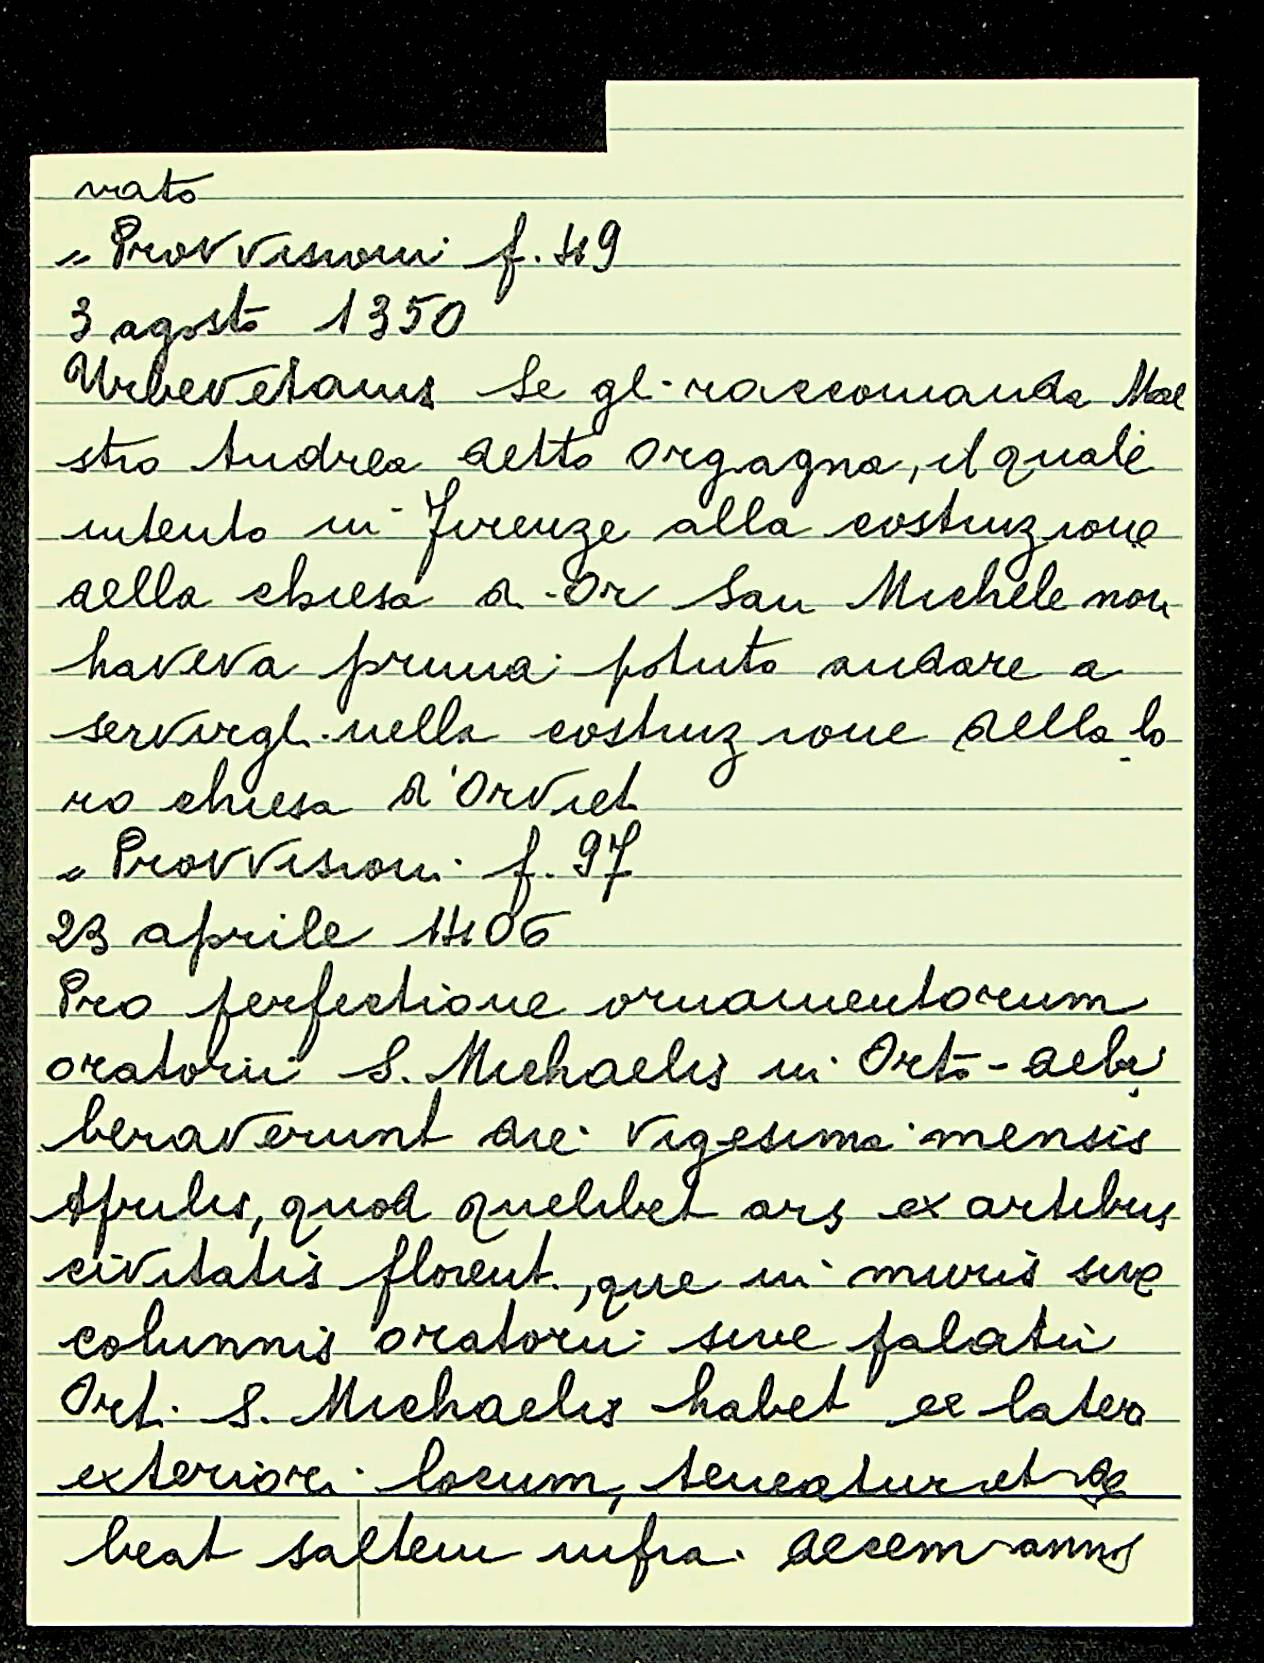 vato
" Provvisioni f. 49
3 agosto 1350
Urbevetanis se gli raccomanda Mae
stro Andrea detto Orgagna, il quale
intento in Firenze alla costruzione
della chiesa di Or San Michele non
haveva prima potuto andare a
servirgli nella costruzione della lo
ro chiesa d'Orviet
" Provvisioni f. 97
23 aprile 1406
Pro perfectione ornamentorum
oratorii S. Michaelis in Orto - deli
beraverunt die vigesima mensis
Aprilis, quod quelibet ars ex artibus
civitatis florent., que in muris sive
columnis oratorii sive palatii
Orti S. Michaelis habet ex latere
exteriori locum, teneatur et de
beat saltem infra decem annos